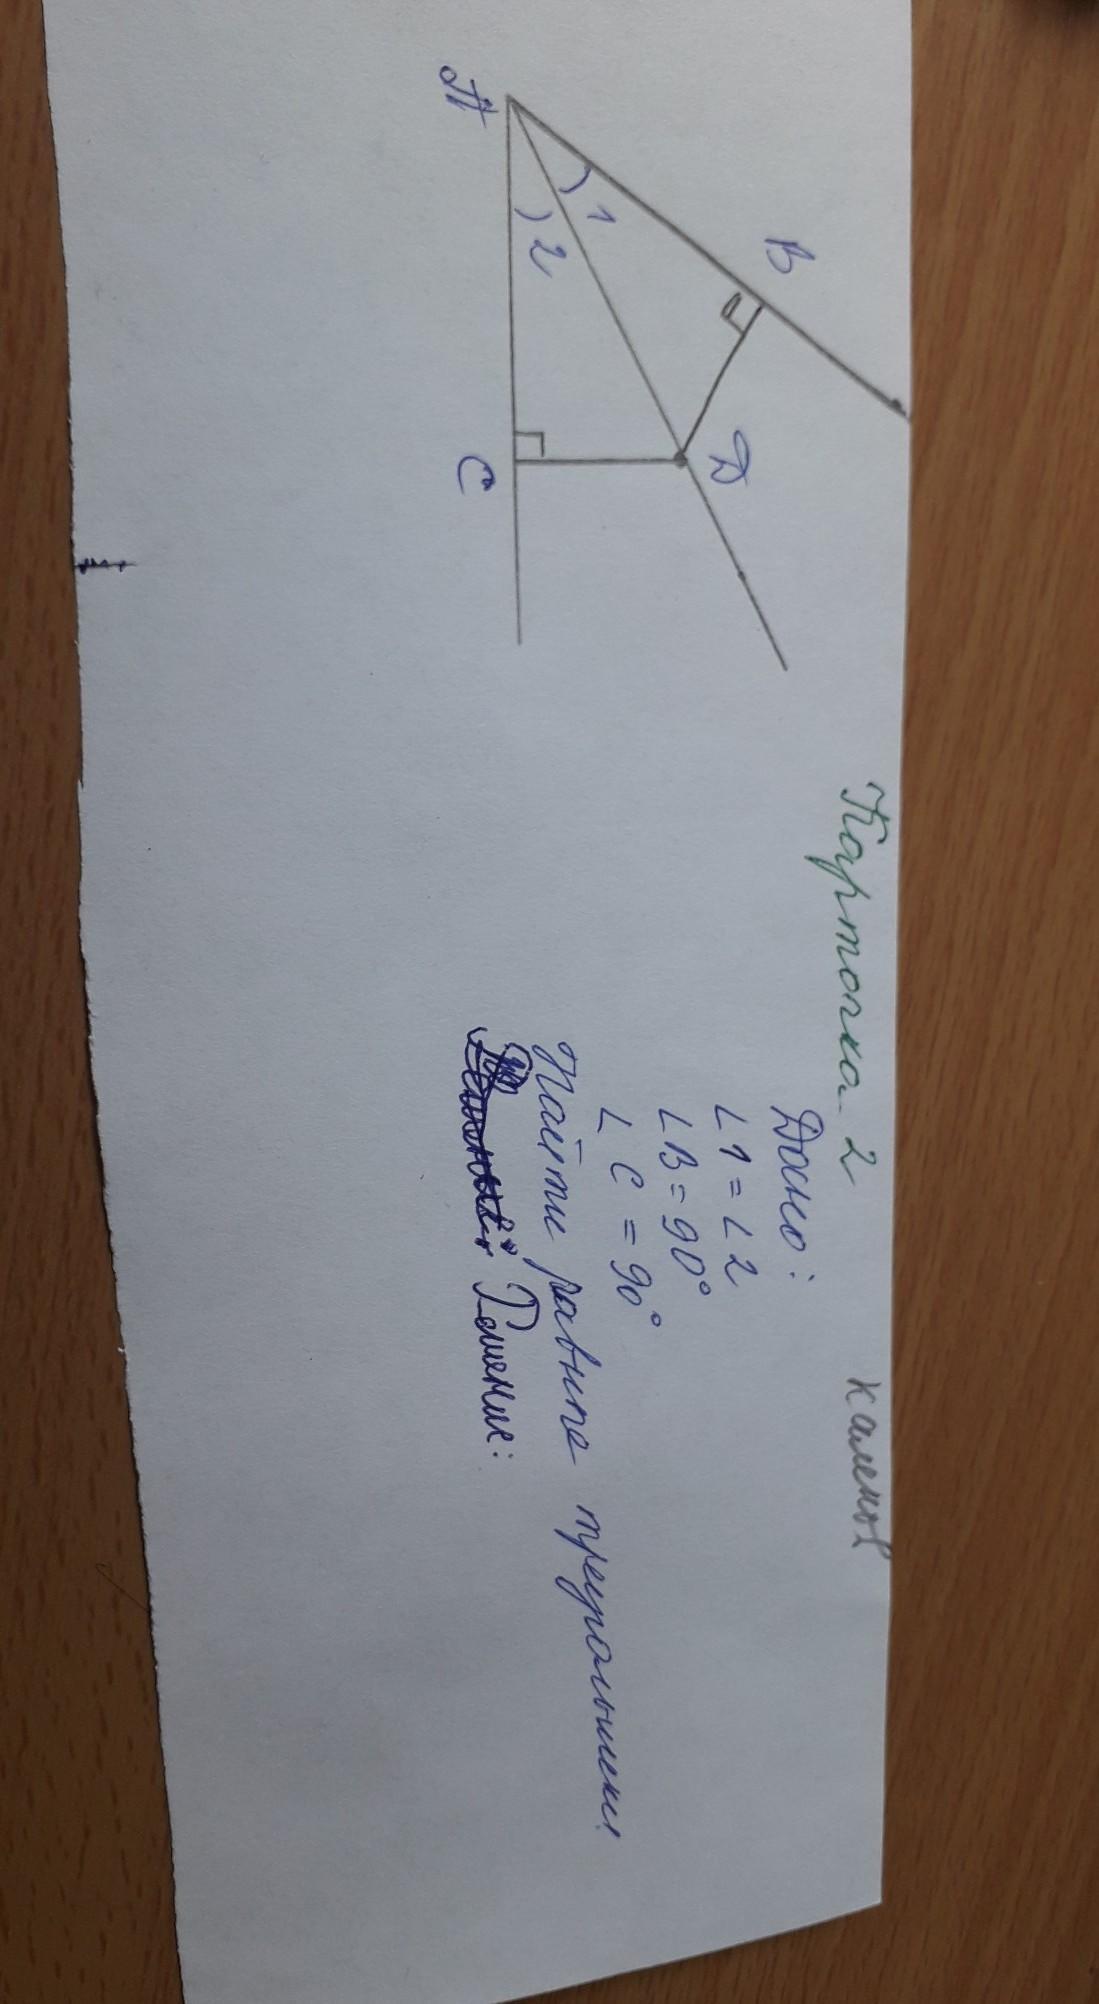 Карточка 2
Каменов
Дано:
∟1 = ∟2
∟B = 90°
∟C = 90°
Найти равные треугольники
Решение:
A
B
1
2
D
C